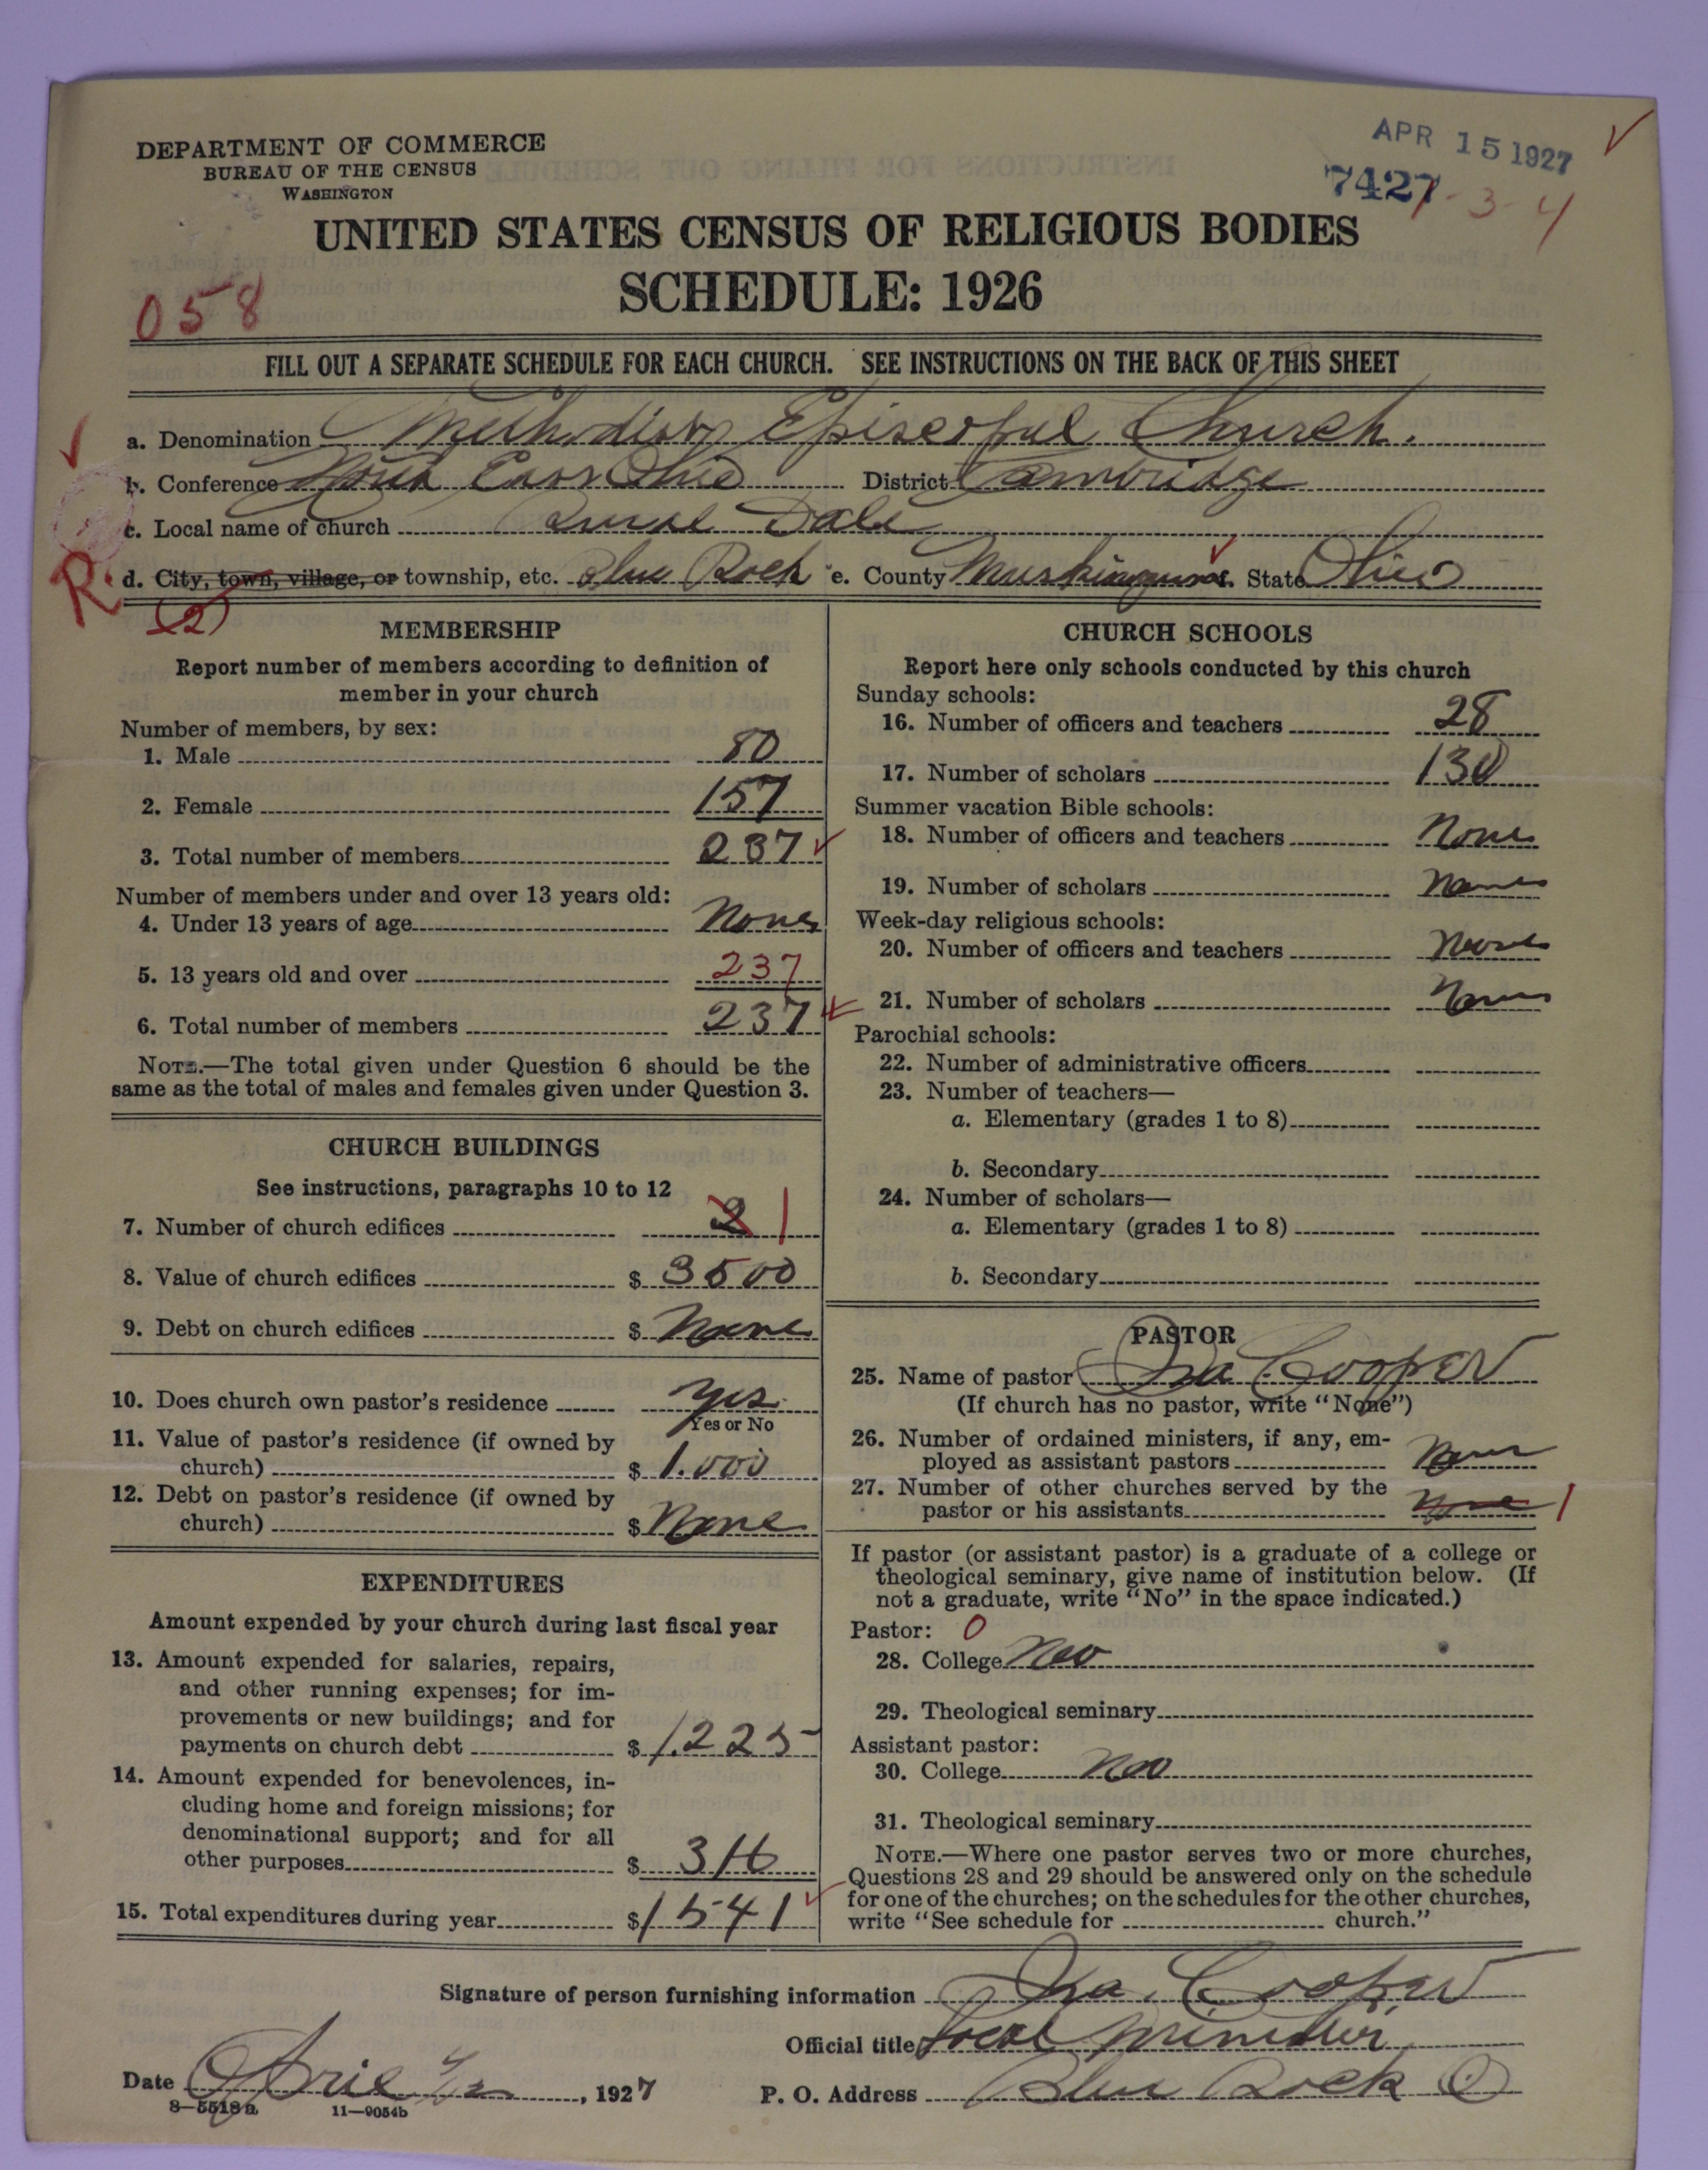 APR 15 1927
DEPARTMENT OF COMMERCE
BUREAU OF THE CENSUS
WASHINGTON
7427
1-3-4
UNITED STATES CENSUS OF RELIGIOUS BODIES
SCHEDULE: 1926
058
FILL OUT A SEPARATE SCHEDULE FOR EACH CHURCH. SEE INSTRUCTIONS ON THE BACK OF THIS SHEET
a. Denomination Methodist Episcopal Church.
b. Conference North East Ohio District Cambridge
c. Local name of church Rural Dale
R. d. City, town, village, or township, etc. Blue Rock e. County Muskingum f. State Ohio
(2)
MEMBERSHIP
Report number of members according to definition of
member in your church
Number of members, by sex:
1. Male 80
2. Female 157
3. Total number of members 237
Number of members under and over 13 years old:
4. Under 13 years of age None
5. 13 years old and over 237
6. Total number of members 237
NOTE.—The total given under Question 6 should be the
same as the total of males and females given under Question 3.
CHURCH BUILDINGS
See instructions, paragraphs 10 to 12
7. Number of church edifices 2 1
8. Value of church edifices $ 3500
9. Debt on church edifices $ None
10. Does church own pastor's residence Yes
Yes or No
11. Value of pastor's residence (if owned by
church) $ 1.000
12. Debt on pastor's residence (if owned by
church) $ None
EXPENDITURES
Amount expended by your church during last fiscal year
13. Amount expended for salaries, repairs,
and other running expenses; for im-
provements or new buildings; and for
payments on church debt $ 1.225
14. Amount expended for benevolences, in-
cluding home and foreign missions; for
denominational support; and for all
other purposes $ 316
15. Total expenditures during year $ 1541
CHURCH SCHOOLS
Report here only schools conducted by this church
Sunday schools:
16. Number of officers and teachers 28
17. Number of scholars 130
Summer vacation Bible schools:
18. Number of officers and teachers None
19. Number of scholars None
Week-day religious schools:
20. Number of officers and teachers None
21. Number of scholars None
Parochial schools:
22. Number of administrative officers
23. Number of teachers—
a. Elementary (grades 1 to 8)
b. Secondary
24. Number of scholars—
a. Elementary (grades 1 to 8)
b. Secondary
PASTOR
25. Name of pastor Ira Cooper
(If church has no pastor, write "None")
26. Number of ordained ministers, if any, em-
ployed as assistant pastors None
27. Number of other churches served by the
pastor or his assistants None 1
If pastor (or assistant pastor) is a graduate of a college or
theological seminary, give name of institution below. (If
not a graduate, write "No" in the space indicated.)
Pastor: 0
28. College No
29. Theological seminary
Assistant pastor:
30. College No
31. Theological seminary
NOTE.—Where one pastor serves two or more churches,
Questions 28 and 29 should be answered only on the schedule
for one of the churches; on the schedules for the other churches,
write "See schedule for church."
Signature of person furnishing information Ira. Cooper
Official title Local Minister
Date April , 1927 P. O. Address Blue Rock O
8—5518a 11—9054b